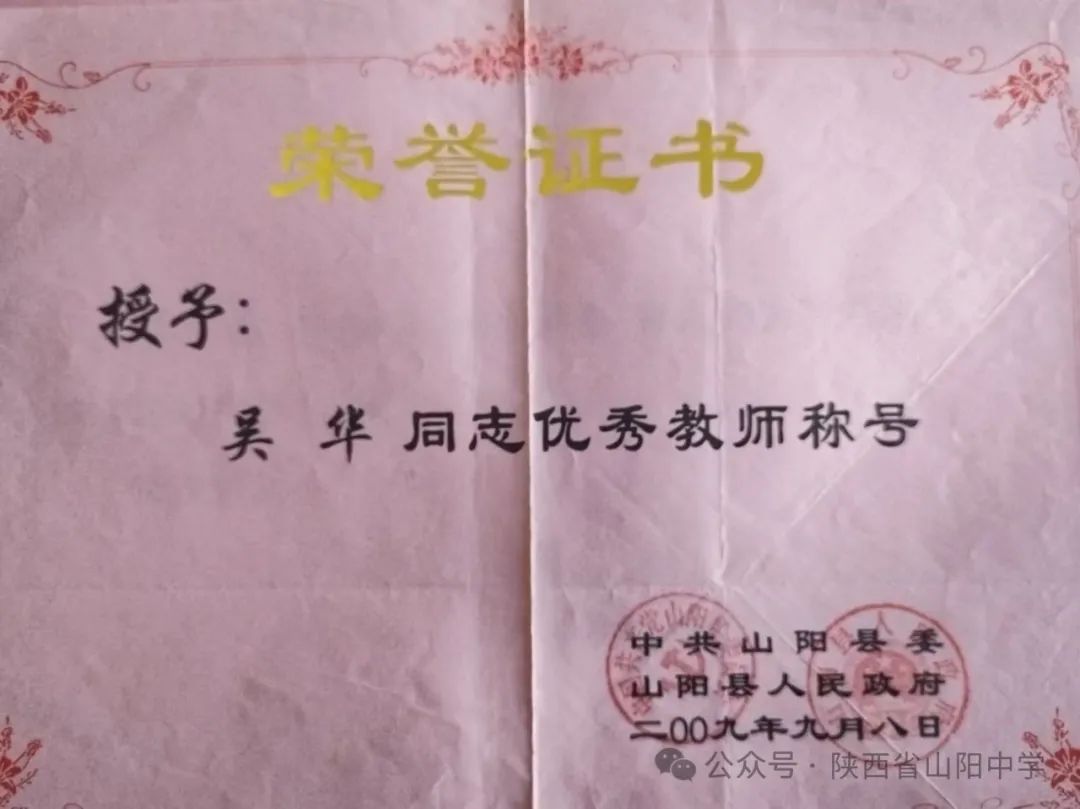 荣誉证书
授予：
吴 华 同志优秀教师称号
中共山阳县委
山阳县人民政府
二00九年九月八日
公众号·陕西省山阳中学